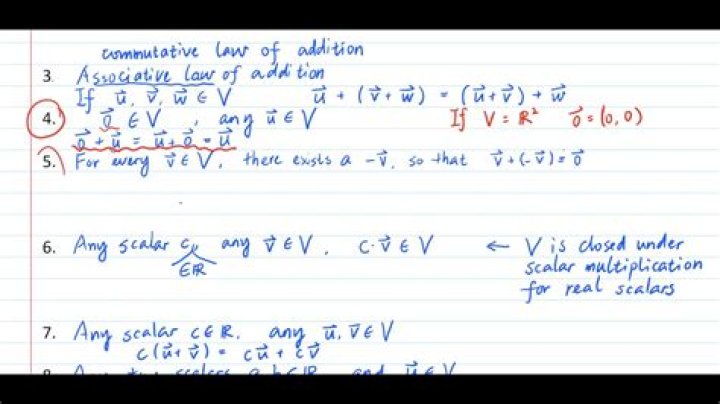 commutative law of addition
3. Associative law of addition
If u⃗, v⃗, w⃗ ∈ V u⃗ + (v⃗ + w⃗) = (u⃗ + v⃗) + w⃗
4. 0⃗ ∈ V, any u⃗ ∈ V If V = ℝ² 0⃗ = (0, 0)
0⃗ + u⃗ = u⃗ + 0⃗ = u⃗
5. For every v⃗ ∈ V, there exists a -v⃗, so that v⃗ + (-v⃗) = 0⃗
6. Any scalar c, any v⃗ ∈ V, c·v⃗ ∈ V ← V is closed under
∈ℝ scalar multiplication
for real scalars
7. Any scalar c ∈ ℝ, any u⃗, v⃗ ∈ V
c(u⃗ + v⃗) = cu⃗ + cv⃗